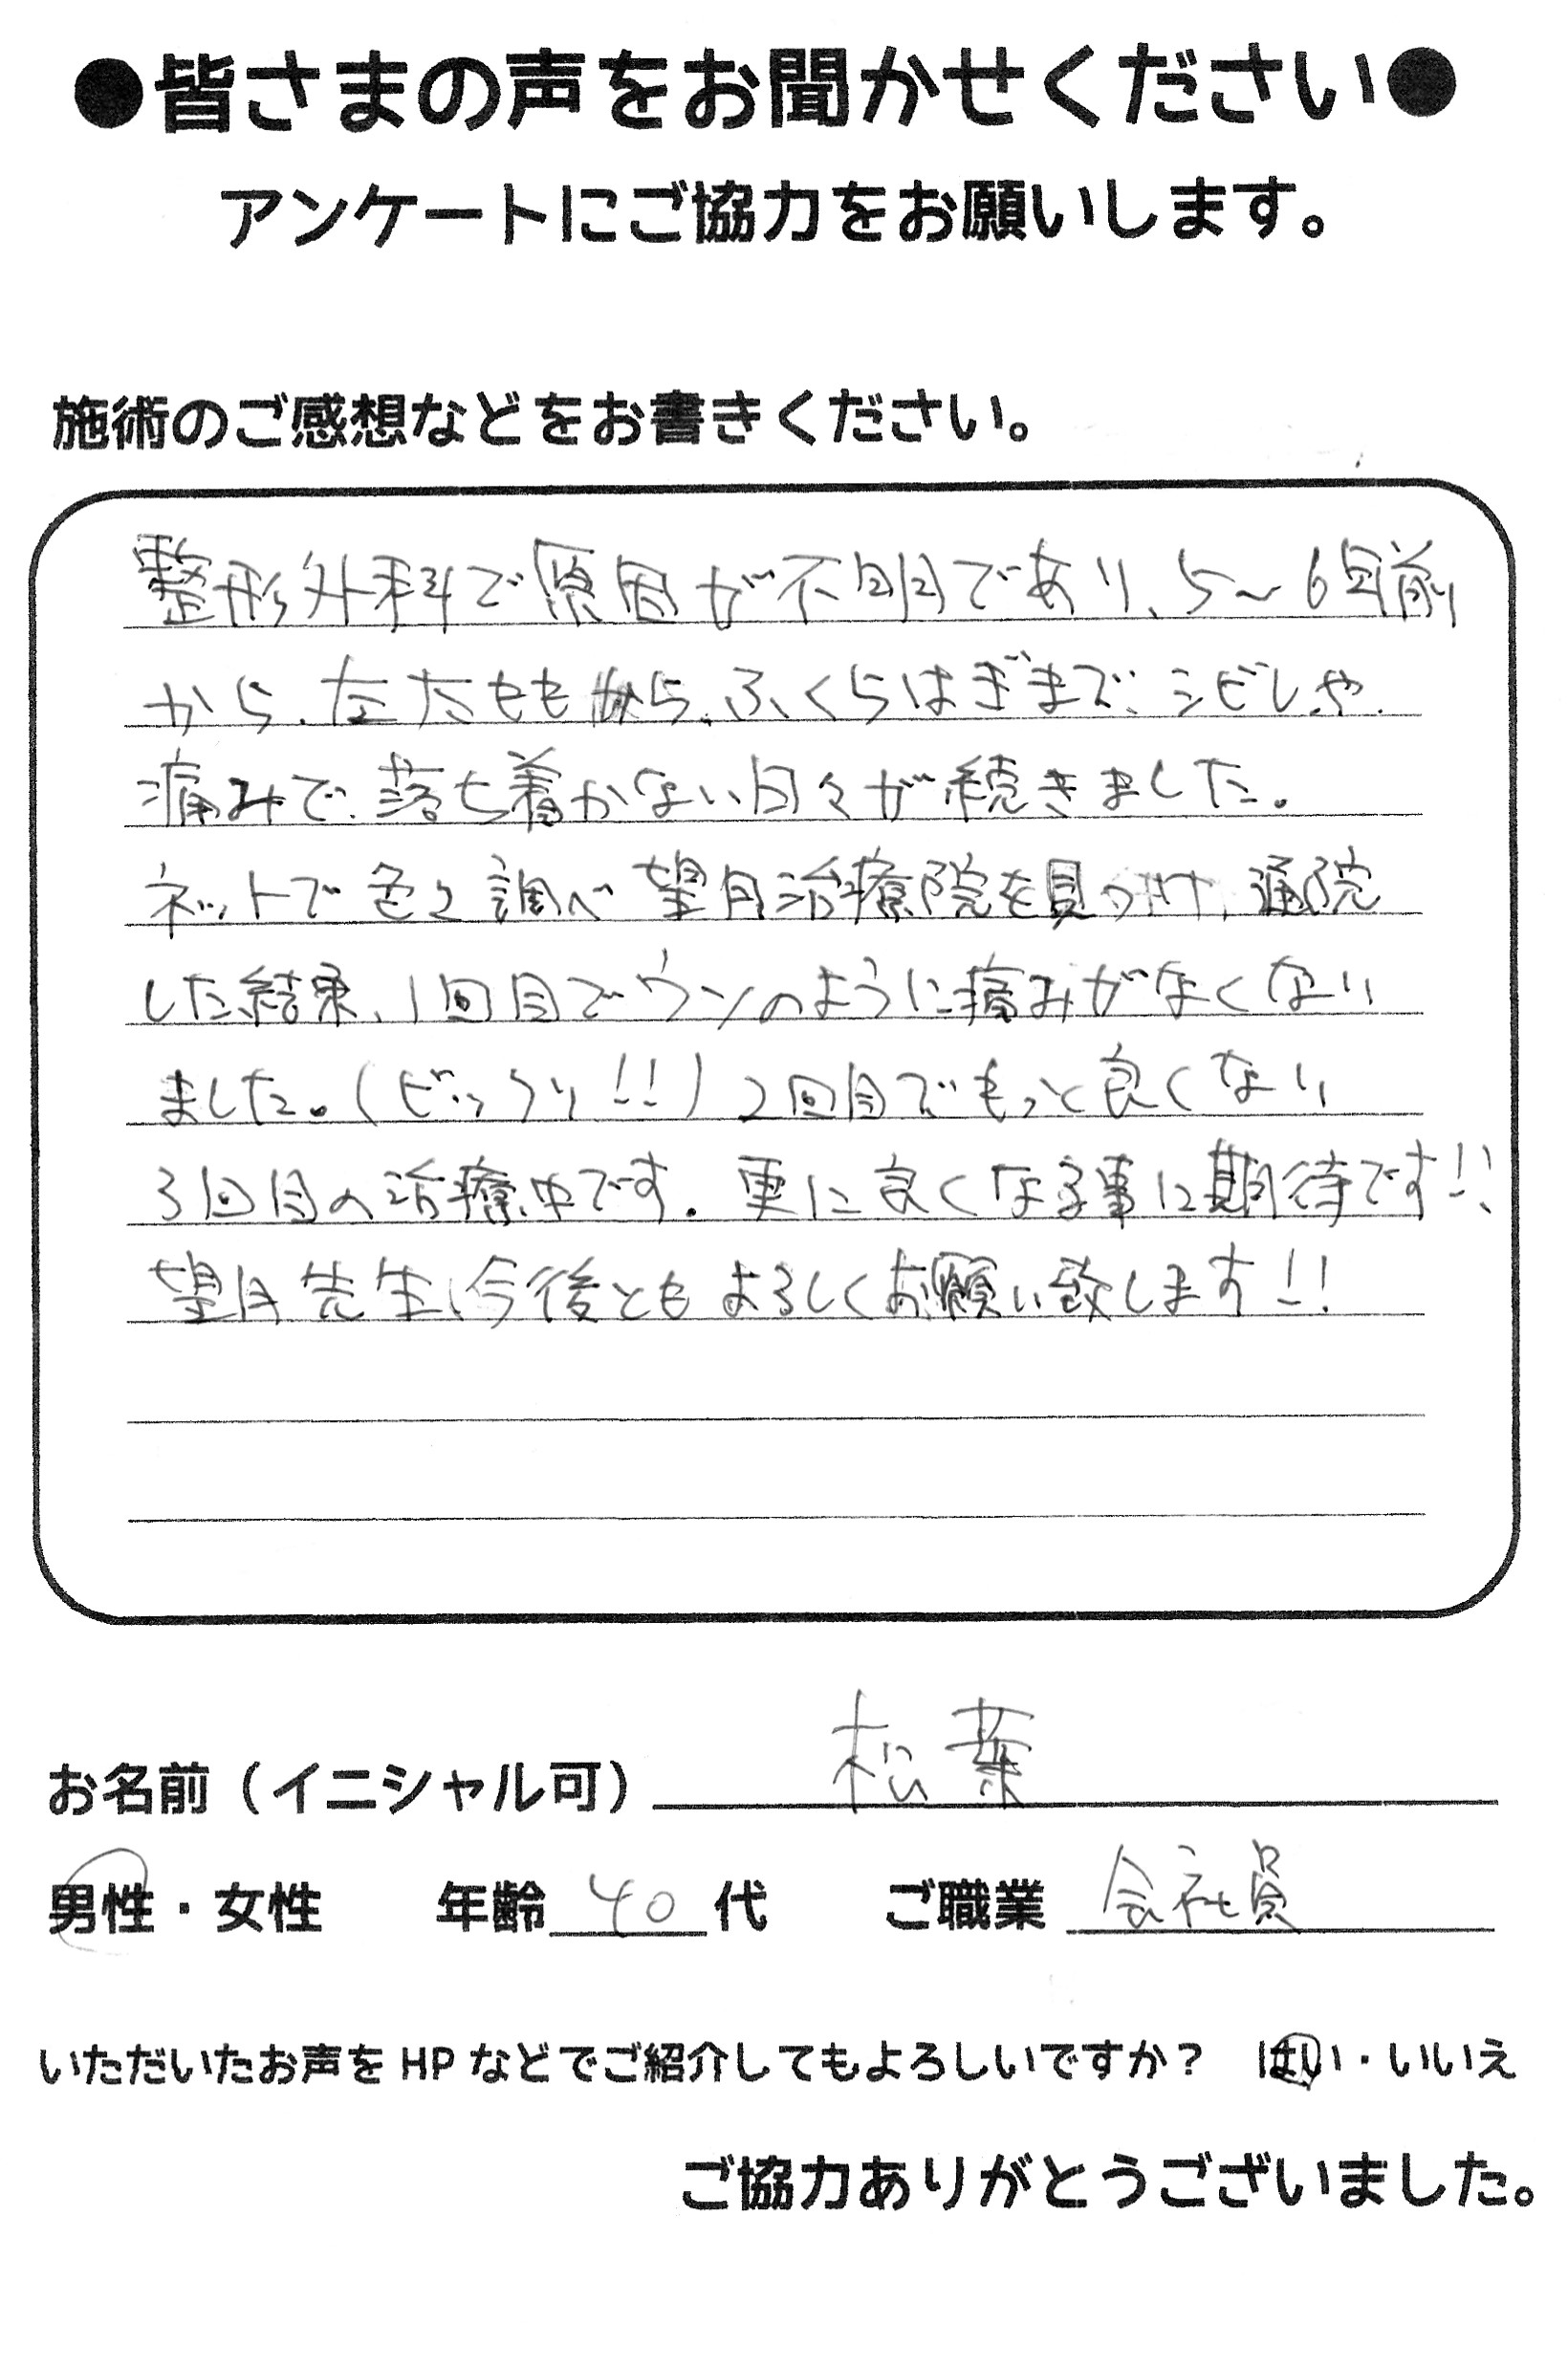 ●皆さまの声をお聞かせください●
アンケートにご協力をお願いします。
施術のご感想などをお書きください。
整形外科で原因が不明であり、5〜6日前
から、左太ももから、ふくらはぎまで、シビレや
痛みで、落ち着かない日々が続きました。
ネットで色々調べ望月治療院を見つけ、通院
した結果、1回目でウソのように痛みがなくなり
ました。(ビックリ!!)2回目でもっと良くなり
3回目の治療中です。更に良くなる事に期待です!!
望月先生、今後ともよろしくお願い致します!!
お名前(イニシャル可) 松葉
男性・女性 年齢 40 代 ご職業 会社員
いただいたお声をHPなどでご紹介してもよろしいですか? はい・いいえ
ご協力ありがとうございました。